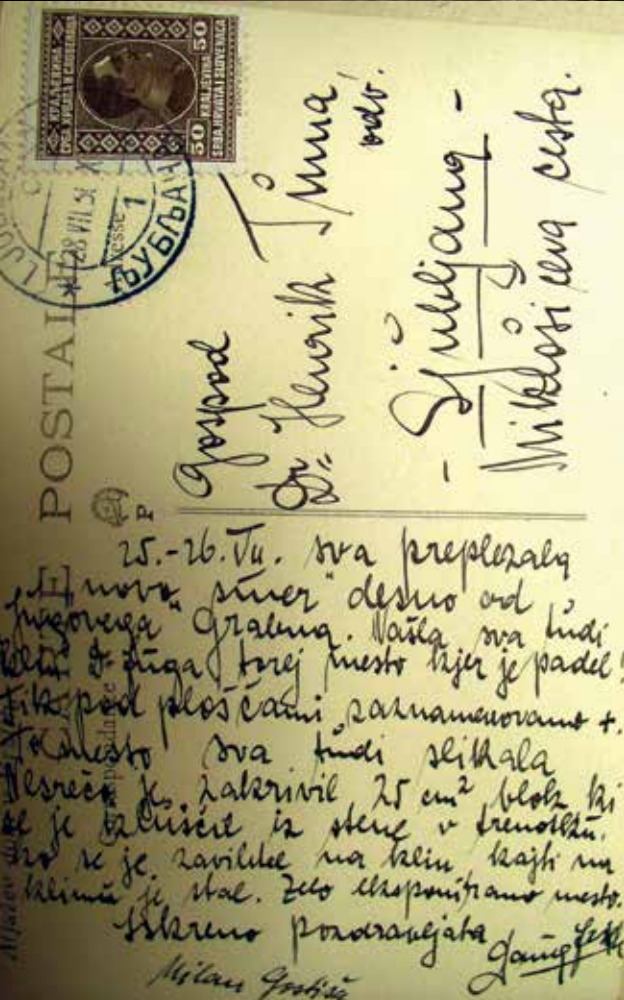 КРАЉЕВИНА
50
50
KRALJEVINA
ЉУБЉАНА
1
28 VII 31
CARTE POSTALE
Gospod
Dr. Henrik Tuma,
odv.
- Ljubljana -
Miklošičeva cesta.
25.-26. VII. sva preplezala
"novo smer" desno od
Jugovega Grabna. Našla sva tudi
Juga torej mesto kjer je padel!
pod ploščami zaznamenovano +.
To mesto sva tudi slikala
Nesrečo je zakrivil 25 cm² blok ki
se je izluščil iz stene v trenotku.
ko se je na klin kajti na
klinu je stal. Zelo eksponirano mesto.
Iskreno pozdravljata
Milan